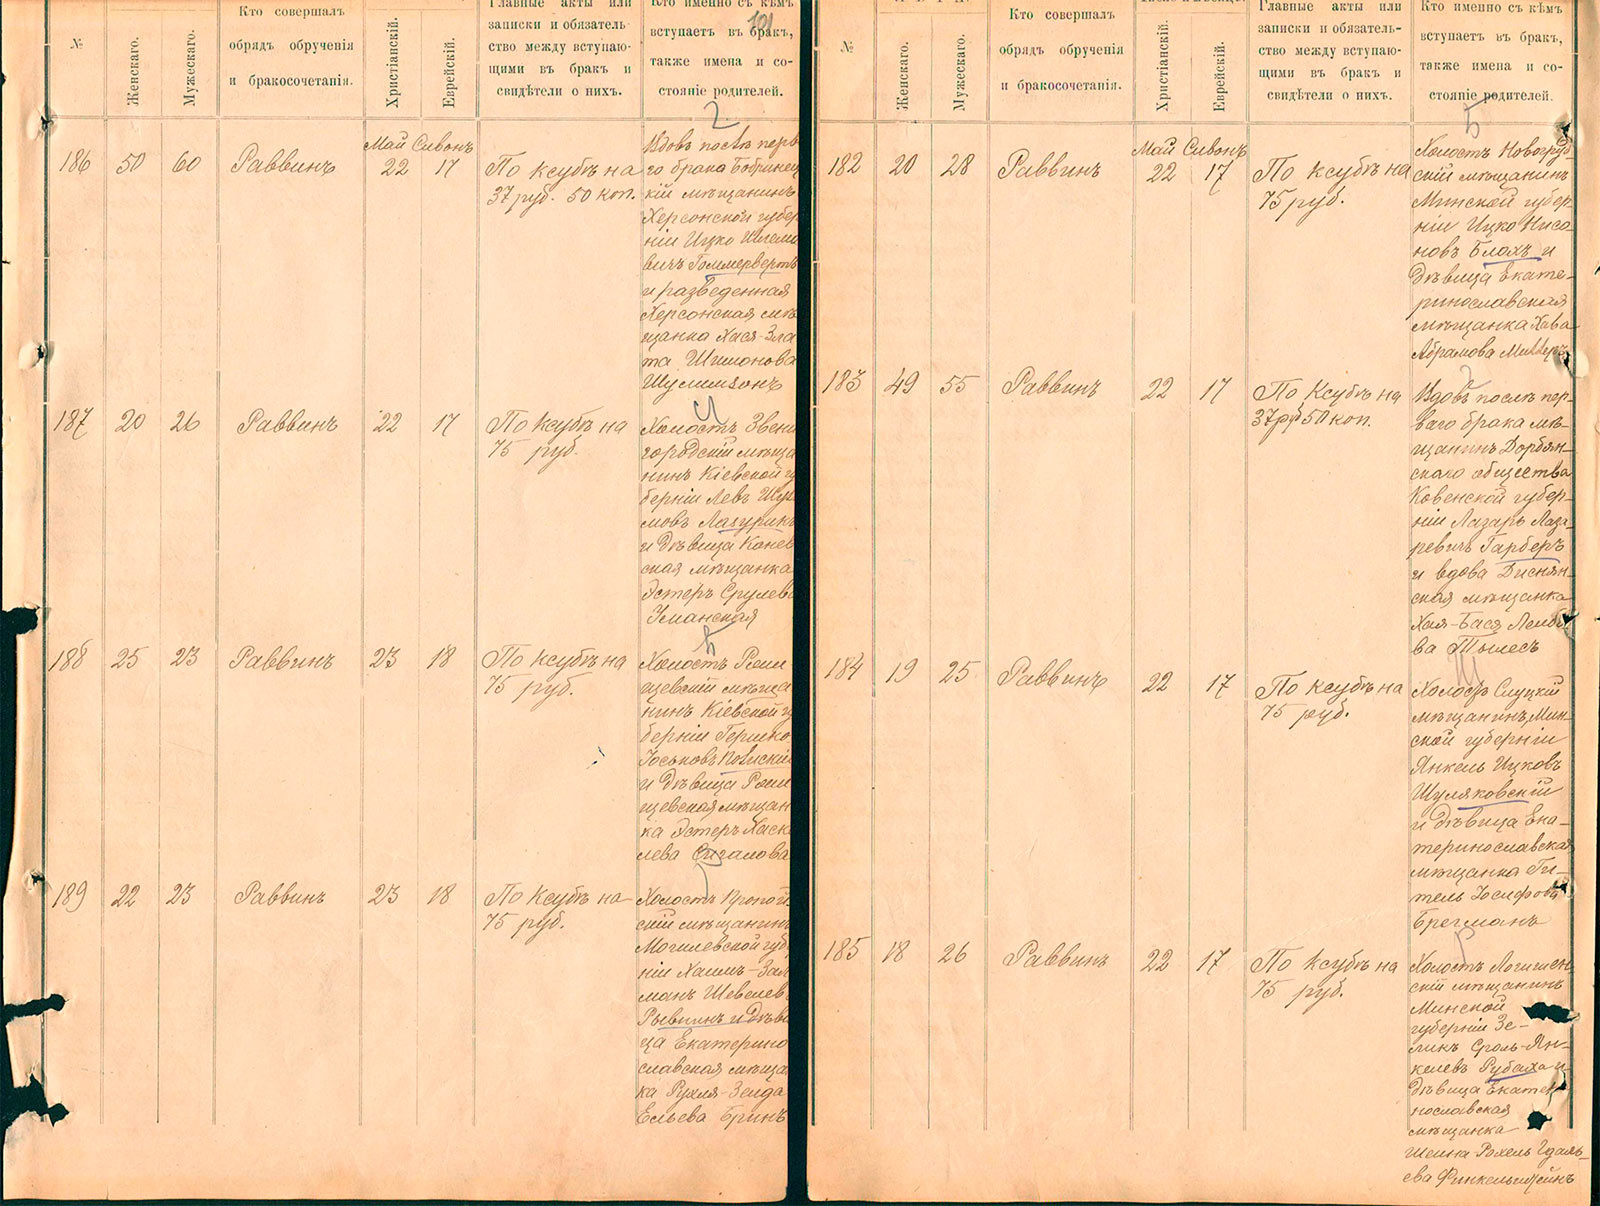 №
Женскаго.
Мужескаго.
Кто совершалъ
обрядъ обрученія
и бракосочетанія.
Христіанскій.
Еврейскій.
Главные акты или
записки и обязатель-
ство между вступаю-
щими въ бракъ и
свидѣтели о нихъ.
Кто именно съ кѣмъ
вступаетъ въ бракъ,
также имена и со-
стояніе родителей.
101
2
Май Сивонъ
186 50 60 Раввинъ 22 17
По ксубѣ на
37 руб. 50 коп.
Вдовъ послѣ перв
го брака Бобринец
кій мѣщанинъ
Херсонской губер
ніи Ицко Шлемо
вичъ Гоммервертъ
и разведенная
Херсонская мѣ
щанка Хася-Зла
та Шимонова
Шулимзонъ
187 20 26 Раввинъ 22 17
По Ксубѣ на
75 руб.
Холостъ Звени
городскій мѣща
нинъ Кіевской гу
берніи Левъ Шу
мовъ Лазурикъ
и дѣвица Канев
ская мѣщанка
Эстеръ Срулева
Уманская
188 25 23 Раввинъ 23 18
По ксубѣ на
75 руб.
Холостъ Рома
щевскій мѣща
нинъ Кіевской гу
берніи Гершко
Іоськовъ
и дѣвица
щевская мѣщан
ка Эстеръ Хаск
лева Сигалова
189 22 23 Раввинъ 23 18
По Ксубѣ на
75 руб.
Холостъ Кропот
скій мѣщанинъ
Могилевской губ
ніи Хаимъ-Зал
манъ Шевелев
Рывкинъ и дѣви
ца Екатерино
славская мѣща
ка Рухля-Зелда
Ельева Гринъ
№
Женскаго.
Мужескаго.
Кто совершалъ
обрядъ обрученія
и бракосочетанія.
Христіанскій.
Еврейскій.
Главные акты или
записки и обязатель-
ство между вступаю-
щими въ бракъ и
свидѣтели о нихъ.
Кто именно съ кѣмъ
вступаетъ въ бракъ,
также имена и со-
стояніе родителей.
Б
Май Сивонъ
182 20 28 Раввинъ 22 17
По ксубѣ на
75 руб.
Холостъ Новогруд
скій мѣщанинъ
Минской губер-
ніи Ицко Нисо
новъ Блохъ и
дѣвица Екате-
ринославская
мѣщанка Хава
Абрамова Миллеръ
183 49 55 Раввинъ 22 17
По Ксубѣ на
37 руб 50 коп.
Вдовъ послѣ пер-
ваго брака мѣ-
щанинъ Дорбян-
скаго общества
Ковенской губер-
ніи Лазарь Лаза-
ревичъ Гарберъ
и вдова Диснян-
ская мѣщанка
Хая-Бася Лейбо
ва Тылесъ
Ш
184 19 25 Раввинъ 22 17
По ксубѣ на
75 руб.
Холостъ Слуцкій
мѣщанинъ, Мин-
ской губерніи
Янкель Ицковъ
Шуляковскій
и дѣвица Ека-
теринославская
мѣщанка Ги-
тель Іосифова
Брегманъ
Р
185 18 26 Раввинъ 22 17
По Ксубѣ на
75 руб.
Холостъ Логишен
скій мѣщанинъ
Минской
губерніи Зе-
ликъ Сроль-Ян-
келевъ Рубаха и
дѣвица Екатери
нославская
мѣщанка
Шейна-Рохель Гдаль-
ева Финкельштейнъ